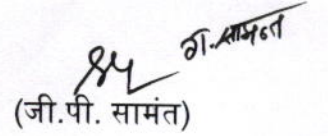 ग. सामन्त
(जी.पी. सामंत)